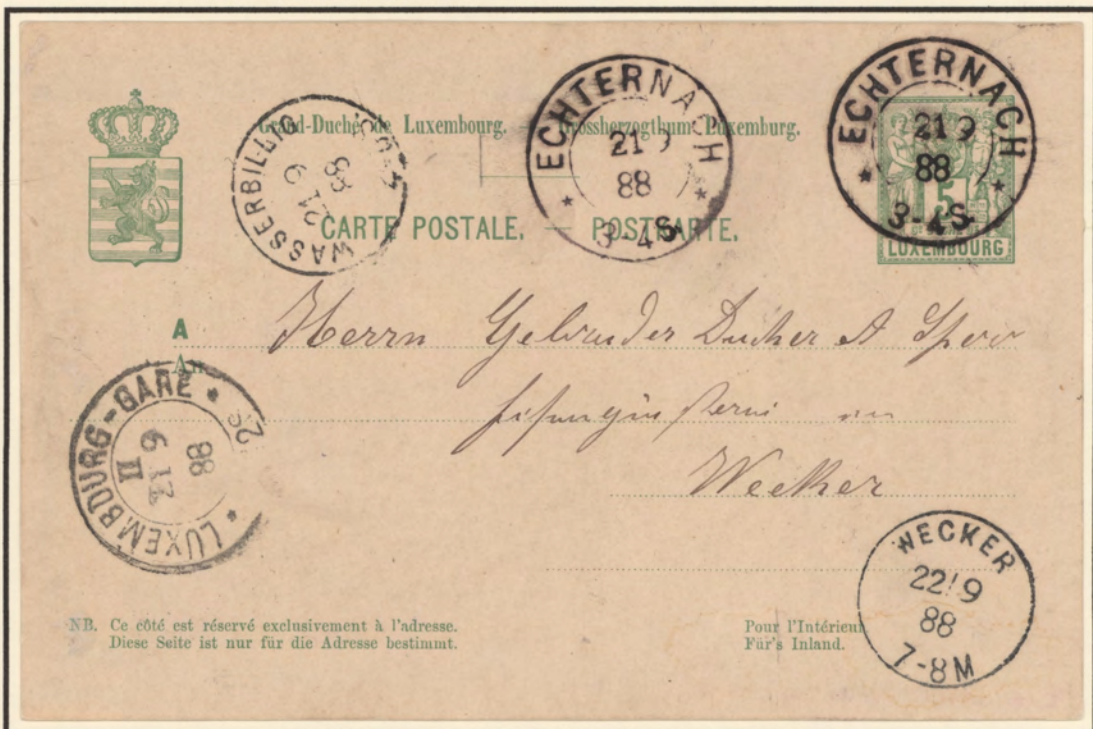 Grand-Duché de Luxembourg. — Grossherzogthum Luxemburg.
CARTE POSTALE. — POSTKARTE.
ECHTERNACH
21 9
88
3-4S
ECHTERNACH
21 9
88
3-4S
5
LUXEMBOURG
WASSERBILLIG
21 9
88
A
An
Herrn Gebruder Ducher
Wecker
LUXEMBOURG-GARE
88
II
WECKER
22 9
88
7-8M
NB. Ce côté est réservé exclusivement à l'adresse.
Diese Seite ist nur für die Adresse bestimmt.
Pour l'Intérieur
Für's Inland.